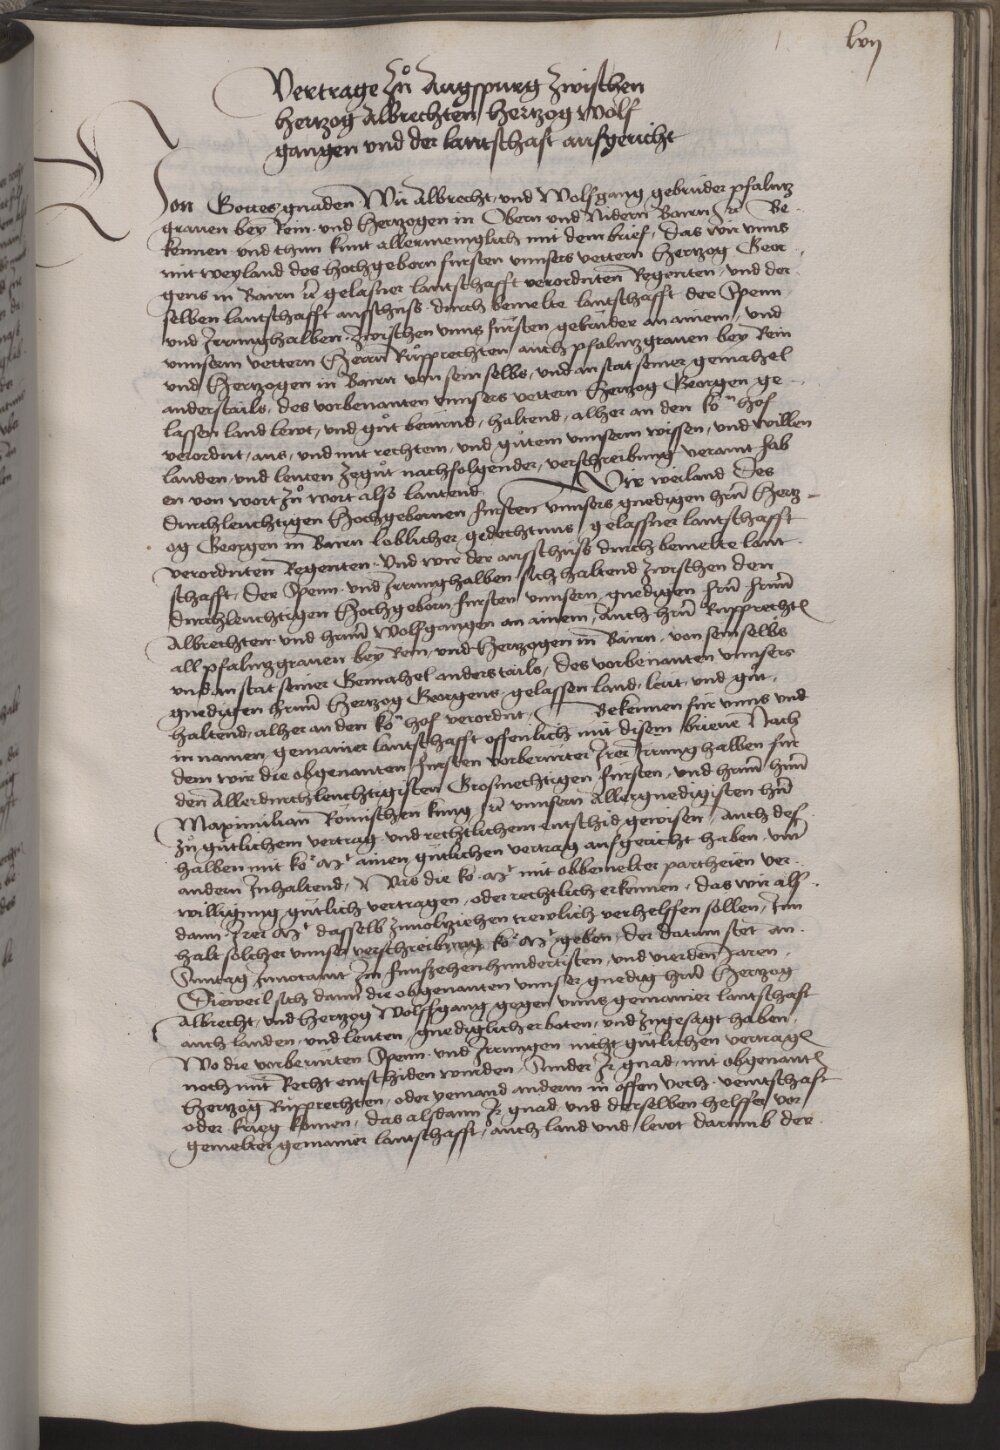 lvij
Vertrage Zů Augspurg Zwischen
hertzog Albrechten hertzog Wolf
gangen vnd der lantschaft aufgericht
Von Gottes gnaden Wir Albrecht, vnd Wolfgang gebrüder pfalntz
grauen bey Rein vnd Hertzogen in Obern vnd Nidern Bairn Be
kennen vnd thun kunt allermenigklich mit dem brief, Das wir vnns
mit weyland des Hochgeborn fursten vnnsers vettern Hertzog Geor
gens in Bairn gelasner lantschafft verordnten Regenten, vnd der
selben lantschafft ausschuss durch bemelte lantschafft der Spenn
vnd Irrunghalben, Zwischen vnns fürsten gebrüder an ainem, vnd
vnnserm vettern Herrn Růpprechten auch pfalntzgrauen bey Rein
vnd Hertzogen in Bairn von sein selbs, vnd an stat seiner gemahel
anderstails, des vorbenanten vnnsers vettern Hertzog Georgen ge
lassen land lewt, vnd gůt berürnd, haltend, alher an den ko:n hof
verordnt, aus, vnd mit rechtem, vnd gůtem vnnserm wissen, vnd willen
landen vnd leuten zegůt nachfolgender, verschreibung veraint hab
en von wort zů wort also lautend Wir weiland Des
durchleuchtigen Hochgebornen fursten vnnsers gnedigen hrn Hertz
og Georgen in Bairn loblicher gedechtnus, gelassner lantschafft
verordnten Regenten. Vnd wir der ausschuss durch bemelte lant
schafft, Der Spenn vnd Irrunghalben sich haltend zwischen den
durchleuchtigen Hochgeborn fursten vnnsern gnedigen hrn hrnn
Albrechten vnd hrnn Wolfgangen an ainem, auch hrn Rupprecht
all pfalntzgrauen bey Rein, vnd Hertzogen in Bairn, von sein selbs
vnd an stat seiner Gemahel anderstails, des vorbenanten vnnsers
gnedigen hrnn Hertzog Georgens gelassen land, leut vnd gut,
haltend, alher an den ko:n hof verordnt, Bekennen für vnns vnd
in namen gemainer lantschafft offenlich mit disem brieue Nach
dem wir die obgenanten fursten vorberürter Irer Irrung halben für
den Allerdurchleuchtigisten Grosmechtigen fursten, vnd hrnn hrnn
Maximilian Römischen kung vnnserm Allergnedigisten hrn
zů gütlichem vertrag vnd rechtlichem entschid gewisen, auch des
halben mit ko:r Mt ainen gütlichen vertrag aufgericht haben, vnd
andern Innhaltend, Was die ko: Mt mit obbemelter partheien ver
willigung gütlich vertragen, oder rechtlich erkennen, das wir als
dann Irer Mt dasselb zuuolziehen trewlich verhelffen sollen, Inn
halt solcher vnnser verschreibung ko:r Mt geben, der datum stet an
Sontag Inuocauit Im funfzehenhundertisten, vnd vierden Jaren,
Dieweil sich dann die obgenanten vnnser gnedig hrn Hertzog
Albrecht, vnd hertzog Wolffgang gegen vnns gemainer lantschaft
auch landen, vnd leuten, gnedigklich erboten, vnd zugesagt haben,
Wo die vorberürten Spenn vnd Irrungen nicht gütlichen vertrag
noch mit Recht entschiden wurden, Sunder Ir gnad, mit obgenant
Hertzog Rupprechten, oder yemand anderm in offen vech veintschaft
oder krieg komen, das alsdann Ir gnad vnd derselben helffer vor
gemelter gemainer lantschafft, auch land vnd lewt darumb der